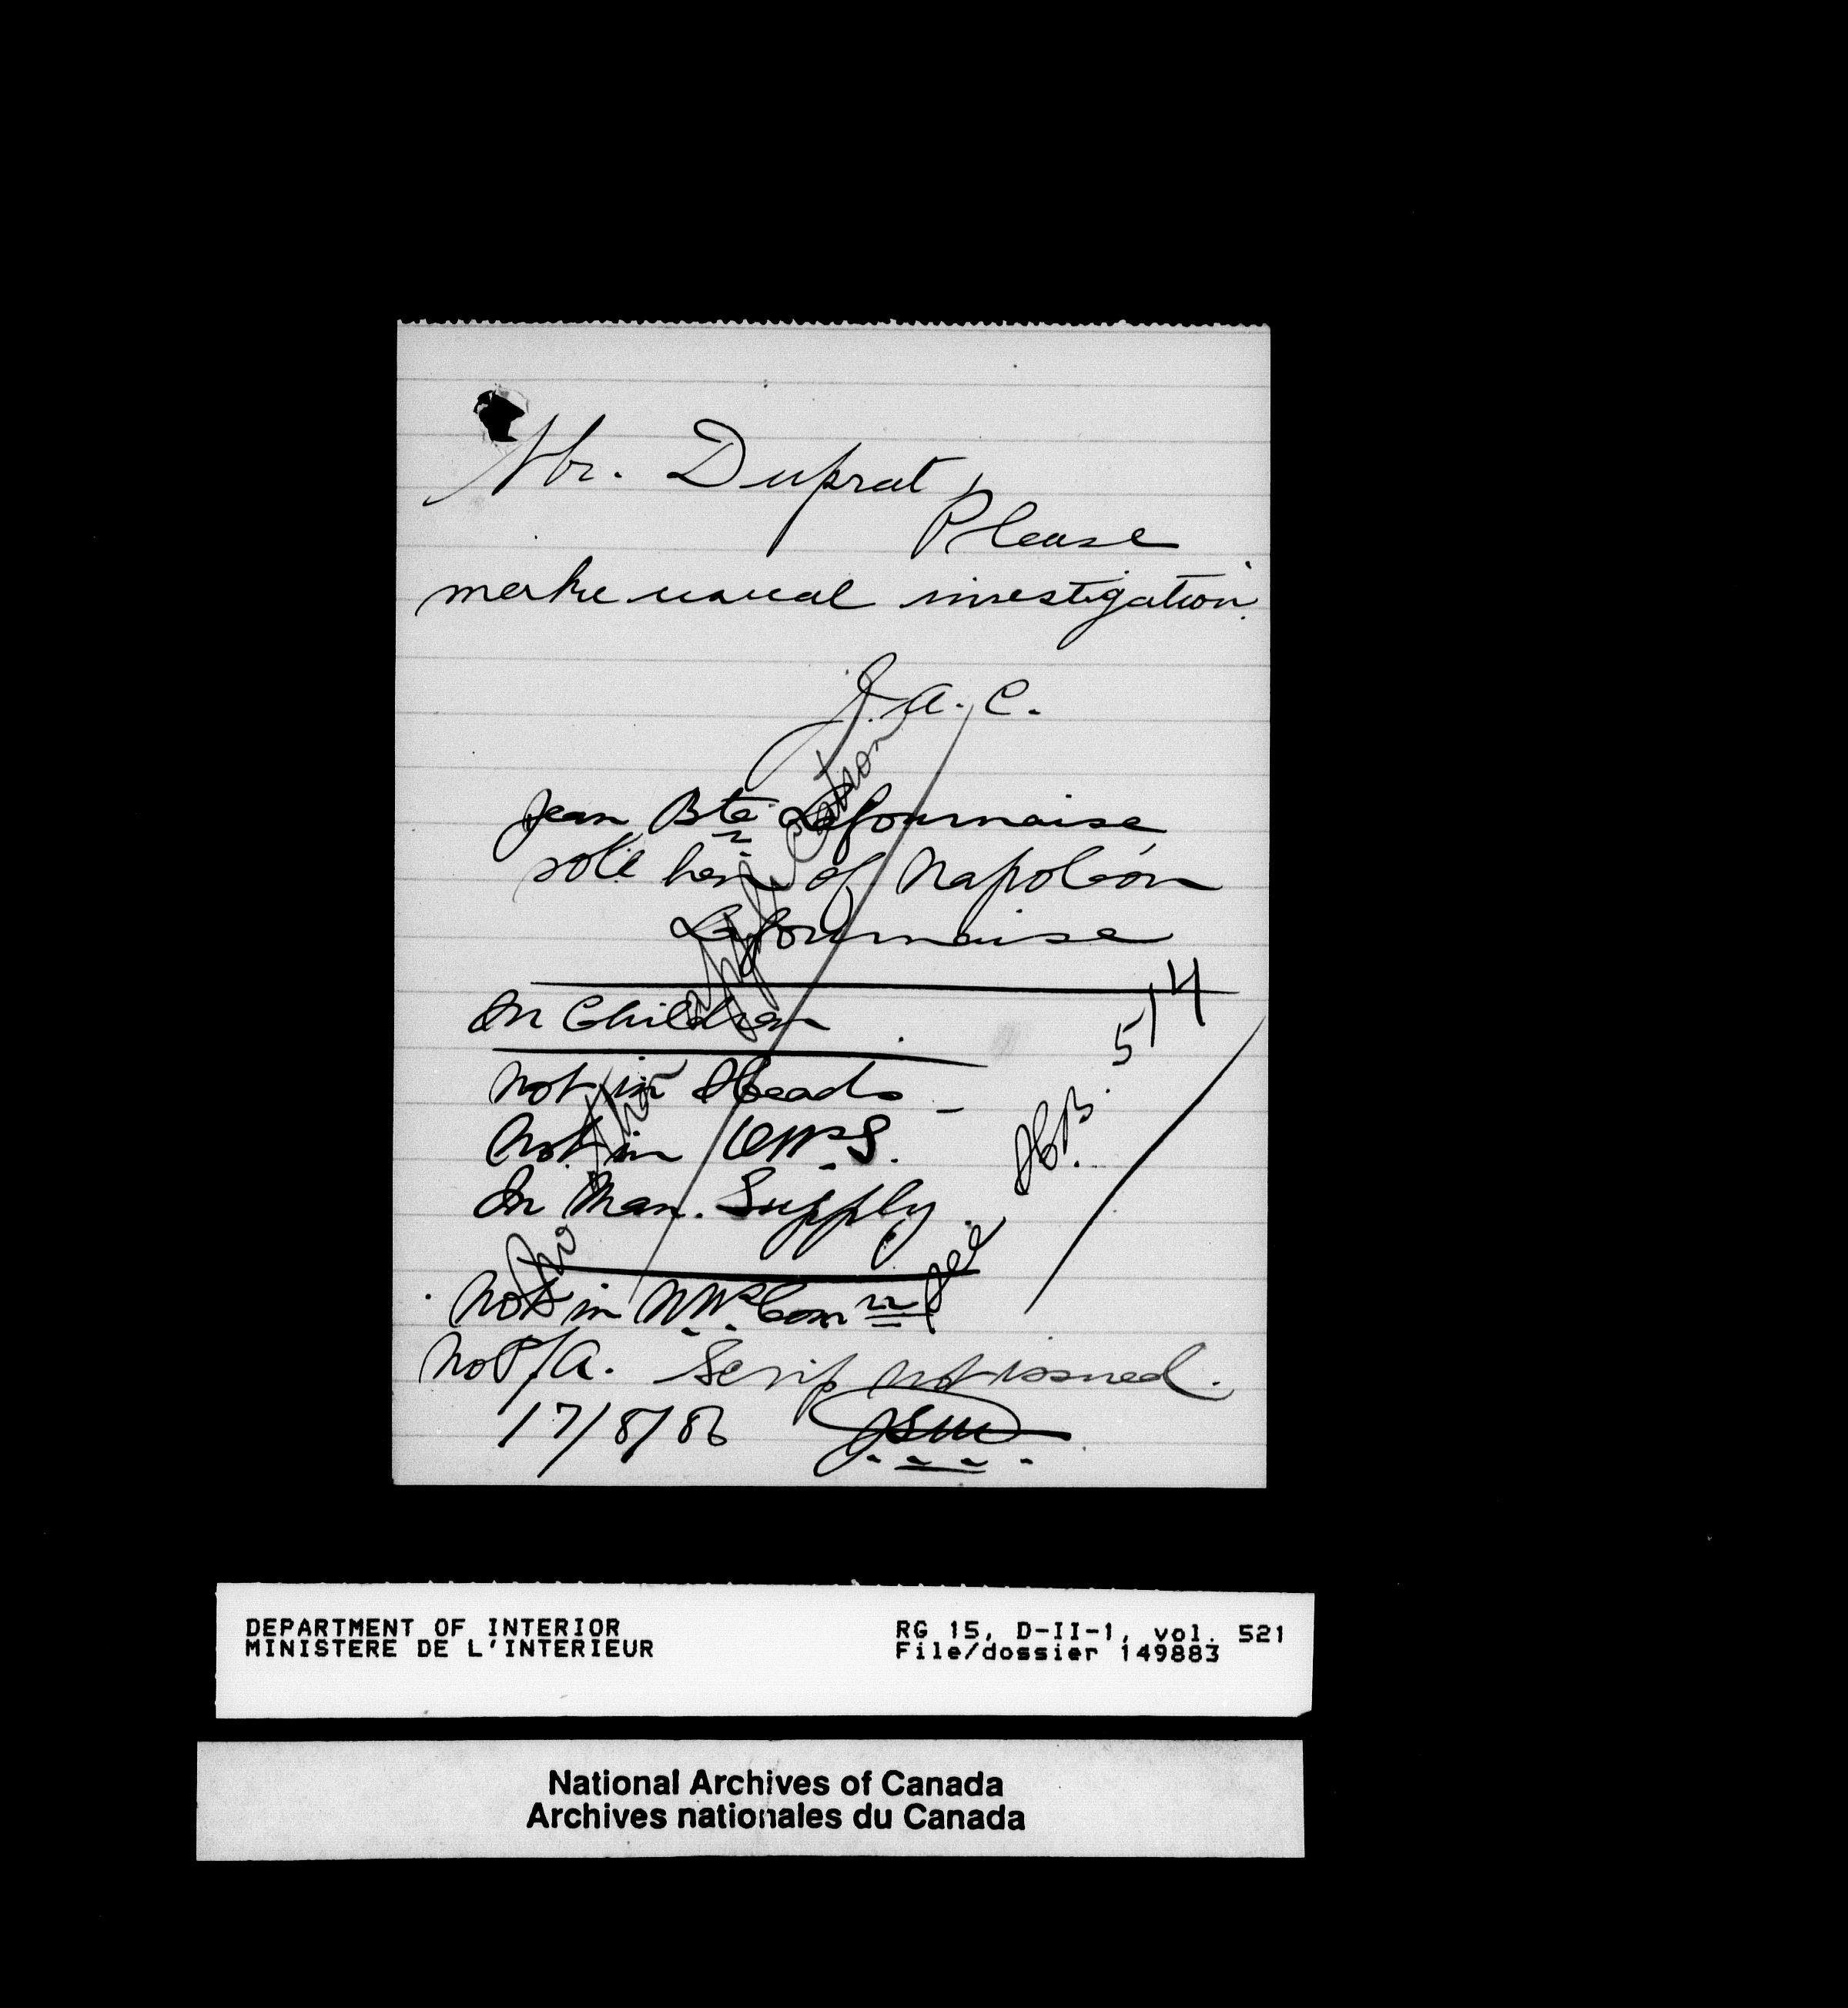 Mr. Duprat,
Please
make usual investigation.
J. A. C.
Jean Bte Lafournaise
sole heir of Napoléon
Lafournaise
In Children
Not in Heads
Not in
In Man. Supply
Not in N.W. Comn
Not/A. Scrip not issued.
17/8/86 J.S.M.
No other application
see H.B. 514
DEPARTMENT OF INTERIOR
MINISTERE DE L'INTERIEUR
RG 15, D-II-1, vol. 521
File/dossier 149883
National Archives of Canada
Archives nationales du Canada